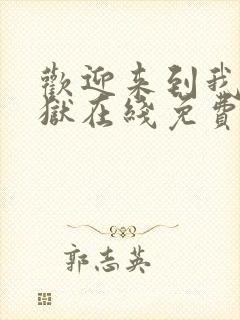 歡迎来到我
獄在綫免費
郭志英